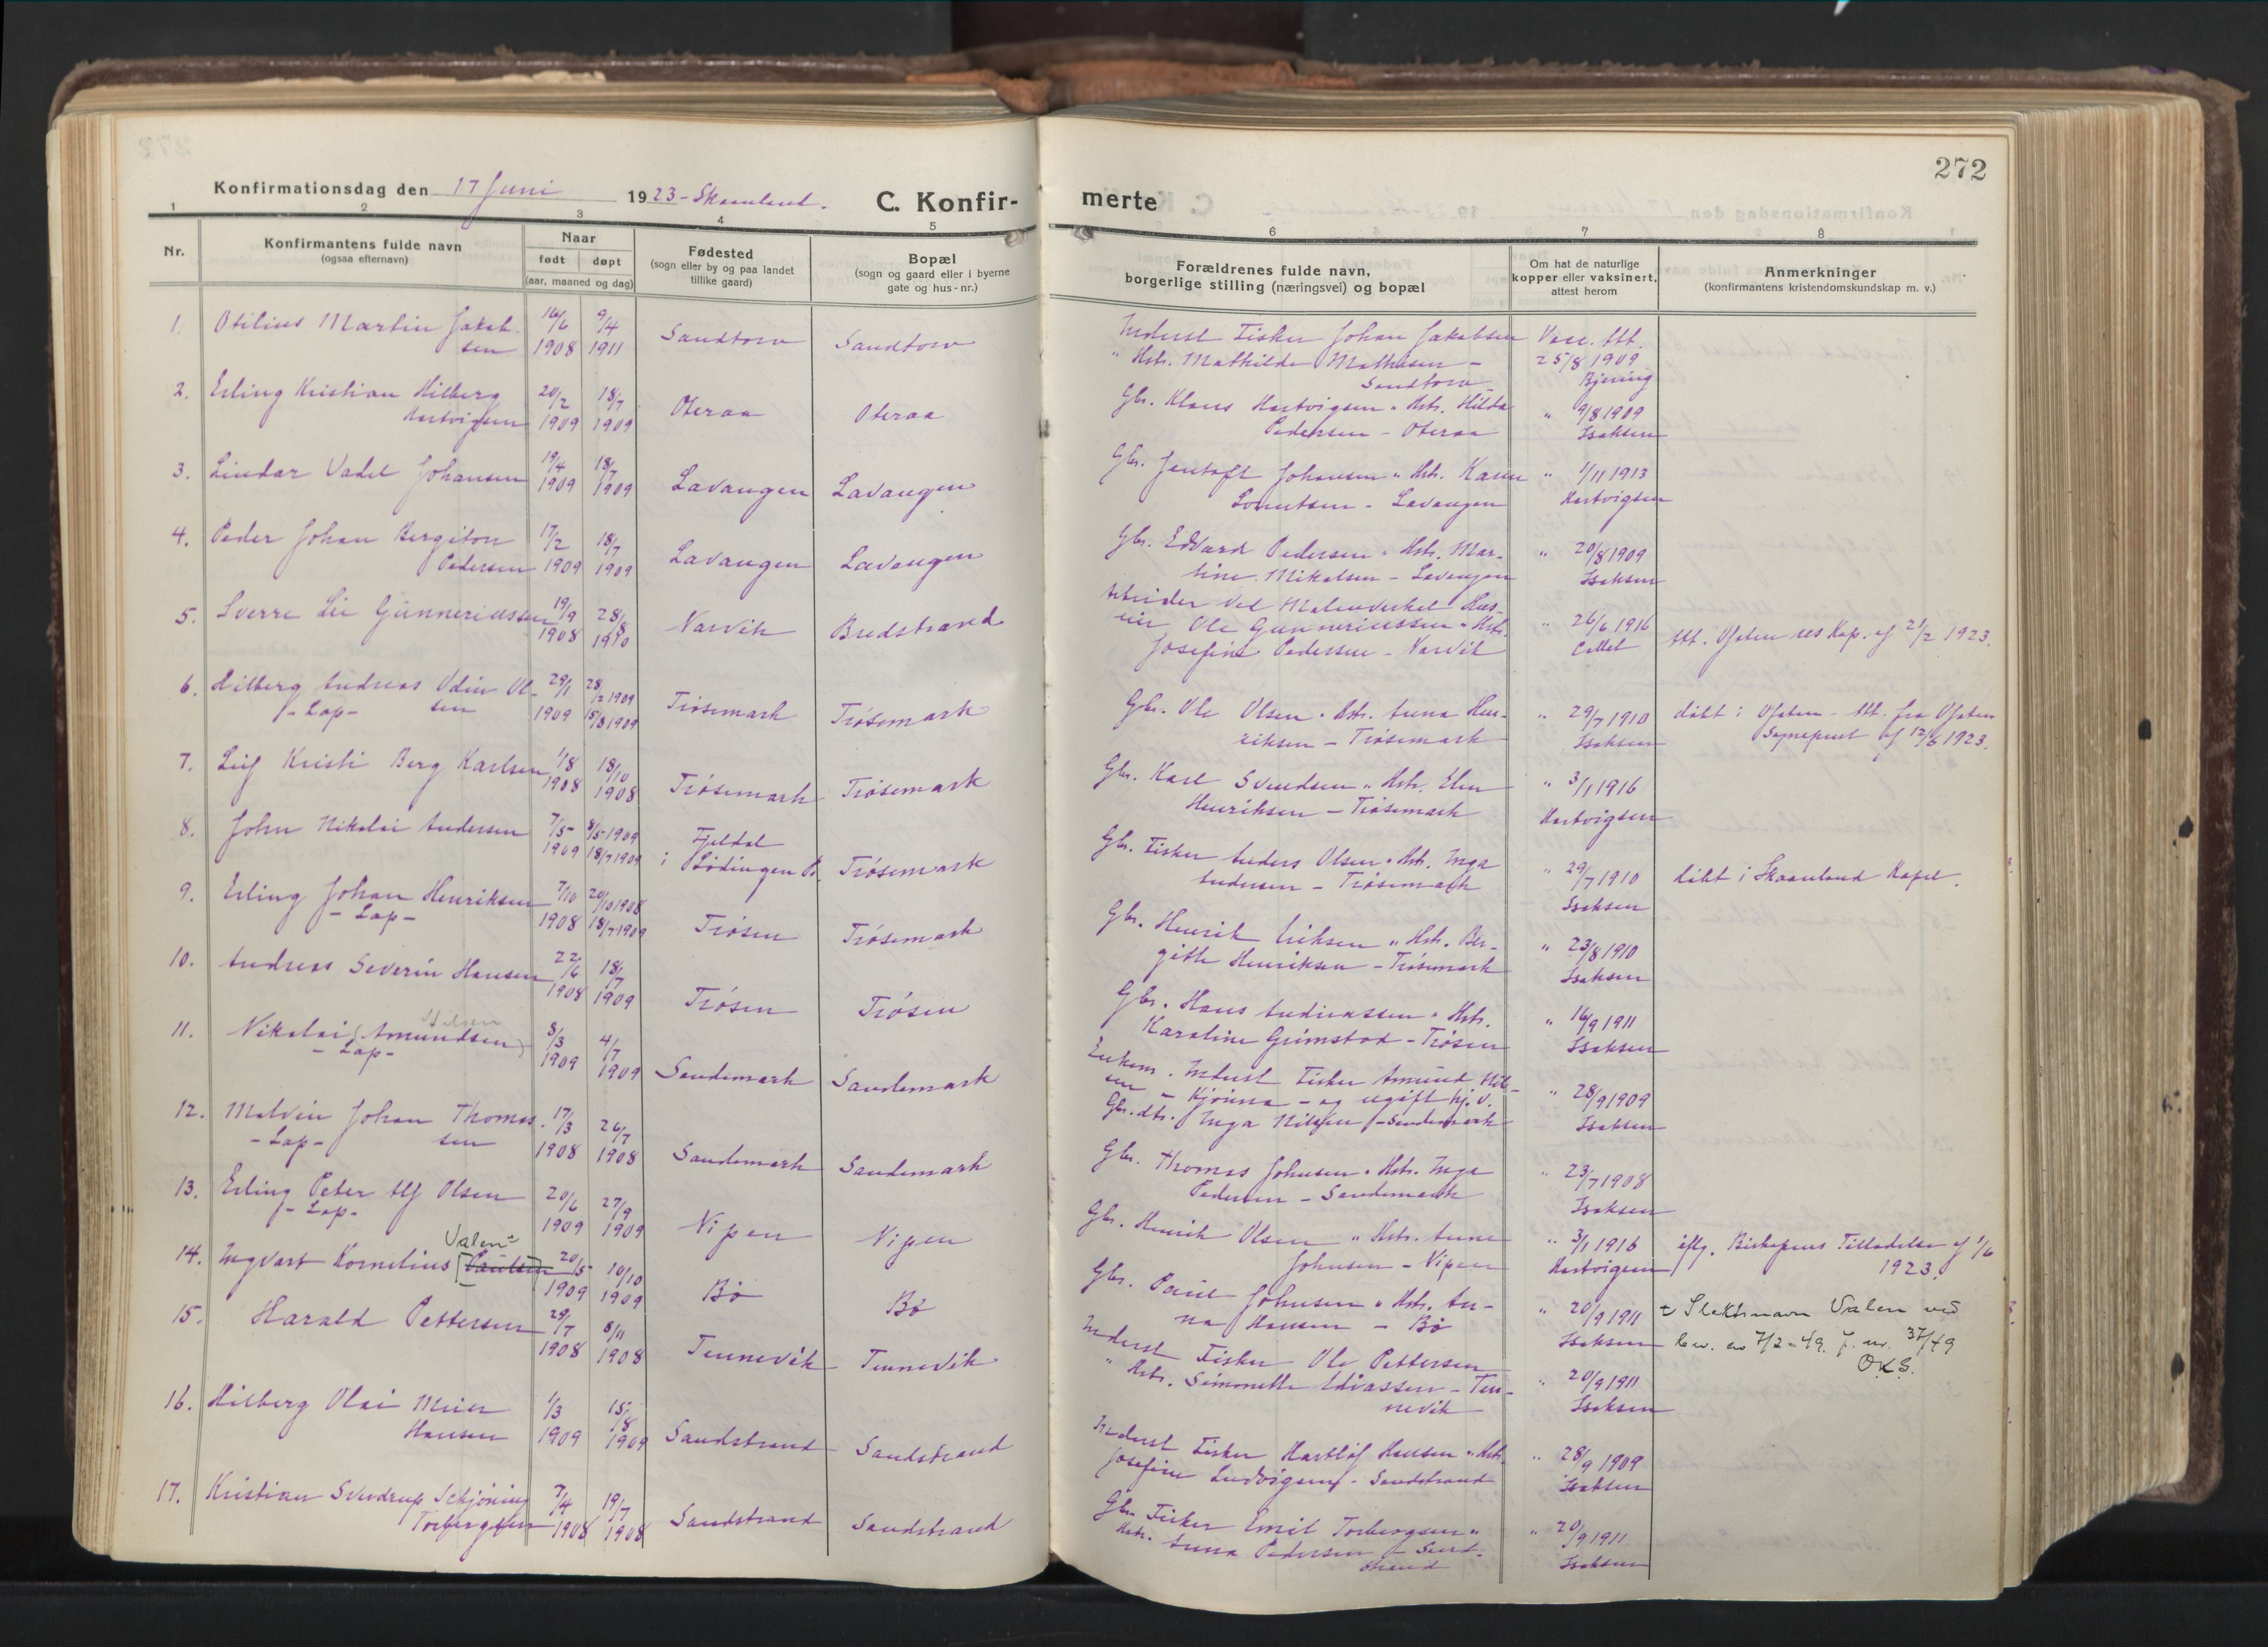 272
Konfirmationsdag den 17 Juni 1923 - Skaanland.
C. Konfir-
merte
1 2 3 4 5
6 7 8
Nr.
Konfirmantens fulde navn
(ogsaa efternavn)
Naar
født døpt
(aar, maaned og dag)
Fødested
(sogn eller by og paa landet
tillike gaard)
Bopæl
(sogn og gaard eller i byerne
gate og hus-nr.)
Forældrenes fulde navn,
borgerlige stilling (næringsvei) og bopæl
Om hat de naturlige
kopper eller vaksinert,
attest herom
Anmerkninger
(konfirmantens kristendomskundskap m. v.)
1. Otilius Martin Jakob- 16/6 9/4 Sandtorv Sandtorv Inderst Fisker Johan Jakobsen Vacc. Att.
sen 1908 1911 " Hstr. Mathilde Mathisen - 25/8 1909
Sandtorv Bjering
2. Erling Kristian Hilberg 20/2 18/7 Oteraa Oteraa Gbr. Klaus Hartvigsen " Hstr. Hilda " 9/8 1909
Hartvigsen 1909 1909 Pedersen - Oteraa Isaksen
3. Lindar Vadel Johansen 19/4 18/7 Lavangen Lavangen Gbr. Jentoft Johansen " Hstr. Karen " 1/11 1913
1909 1909 Lorentsen - Lavangen Hartvigsen
4. Peder Johan Bergiton 17/2 18/7 Lavangen Lavangen Gbr. Edvard Pedersen " Hstr. Mar- " 20/8 1909
Pedersen 1909 1909 tine Mikalsen - Lavangen Isaksen
5. Sverre Lie Gunneriussen 19/9 28/8 Narvik Bredstrand Arbeider ved Malmverket
1908 1910 Ole Gunneriussen " Hstr. " 26/6 1916
Josefine Pedersen - Narvik Att. Ofoten res Kap. af 21/2 1923.
6. Hilberg Andreas Odin Ol- 29/1 28/2 1909 Trøsemark Trøsemark Gbr. Ole Olsen " Hstr. Anna Hen- " 29/7 1910 døbt i Ofoten - Att. fra Ofoten
- Lap - sen 1909 15/8 1909 riksen - Trøsemark Isaksen Sogneprest af 12/6 1923.
7. Leif Kristi Berg Karlsen 1/8 18/10 Trøsemark Trøsemark Gbr. Karl Svendsen " Hstr. Elen " 3/1 1916
1908 1908 Henriksen - Trøsemark Hartvigsen
8. John Nikolai Andersen 7/5 8/5 1909 Fjeldal Trøsemark Gbr. Fisker Anders Olsen " Hstr. Inga " 29/7 1910 døbt i Skaanland Kapel.
1909 18/7 1909 i Lødingen Andersen - Trøsemark Isaksen
9. Erling Johan Henriksen 7/10 20/10 1908 Trøsen Trøsemark Gbr. Henrik Eriksen " Hstr. Ber- " 23/8 1910
- Lap - 1908 18/7 1909 gitte Henriksen - Trøsemark Isaksen
10. Andreas Severin Hansen 22/6 18/7 Trøsen Trøsen Gbr. Hans Andreassen " Hstr. " 16/9 1911
1908 1909 Karoline Grimstad - Trøsen Isaksen
11. Nikolai (Amundsen) Nilsen 8/3 4/7 Sandemark Sandemark Enkem. Inderst Fisker Amund Nil- " 28/9 1909
- Lap - 1909 1909 sen - Kjønna - og ugift Isaksen
Gbr. dtr. Inga Nilsen - Sandemark
12. Malvin Johan Thomas- 17/3 26/7 Sandemark Sandemark Gbr. Thomas Johnsen " Hstr. Inga " 23/7 1908
- Lap - sen 1908 1908 Pedersen - Sandemark Isaksen
13. Erling Peter Alf Olsen 20/6 27/9 Nipen Nipen Gbr. Henrik Olsen " Hstr. Anne " 3/1 1916 iflg. Biskopens Tilladelse af 1/6
- Lap - 1909 1909 Johnsen - Nipen Hartvigsen 1923.
14. Ingvart Kornelius [Paulsen] Valen 20/5 10/10 Bø Bø Gbr. Paul Johnsen " Hstr. An- " 20/9 1911 Slektsnavn Valen ved
1909 1909 na Hansen - Bø Isaksen bev. av 7/2-49. j. nr. 37/49
O.K.S.
15. Harald Pettersen 29/7 8/11 Tennevik Tennevik Inderst Fisker Ole Pettersen " 20/9 1911
1908 1908 " Hstr. Simonette Edvassen - Ten- Isaksen
nevik
16. Hilberg Olai Meier 1/3 15/8 Sandstrand Sandstrand Inderst Fisker Hartlof Hansen " Hstr. " 28/9 1909
Hansen 1909 1909 Josefine Ludvigsen - Sandstrand Isaksen
17. Kristian Sverdrup Schjøning 7/4 19/7 Sandstrand Sandstrand Gbr. Fisker Emil Torbergsen " " 20/9 1911
Torbergsen 1908 1908 Hstr. Anna Pedersen - Sand- Isaksen
strand